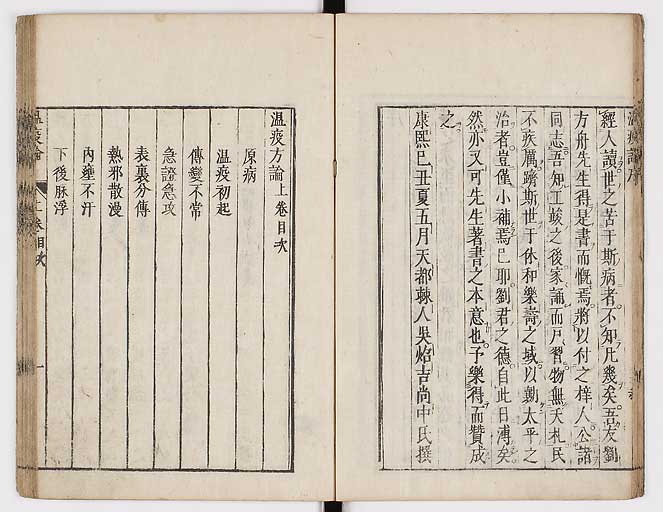 經人讀世之苦于斯病者不知凡幾矣吾友劉
方舟先生得是書而慨焉將以付之梓人公諸
同志吾知工竣之後家誦而戶習物無夭札民
不疾厲躋斯世于休和樂壽之域以勷太平之
治者豈僅小補焉已耶劉君之德自此日溥矣
然亦又可先生著書之本意也予樂得而贊成
之
康熙己丑夏五月天都棘人吳焰吉尚中氏撰
溫疫方論上卷目次
原病
溫疫初起
傳變不常
急證急攻
表裏分傳
熱邪散漫
內壅不汗
下後脉浮
溫疫論
上卷目次
一